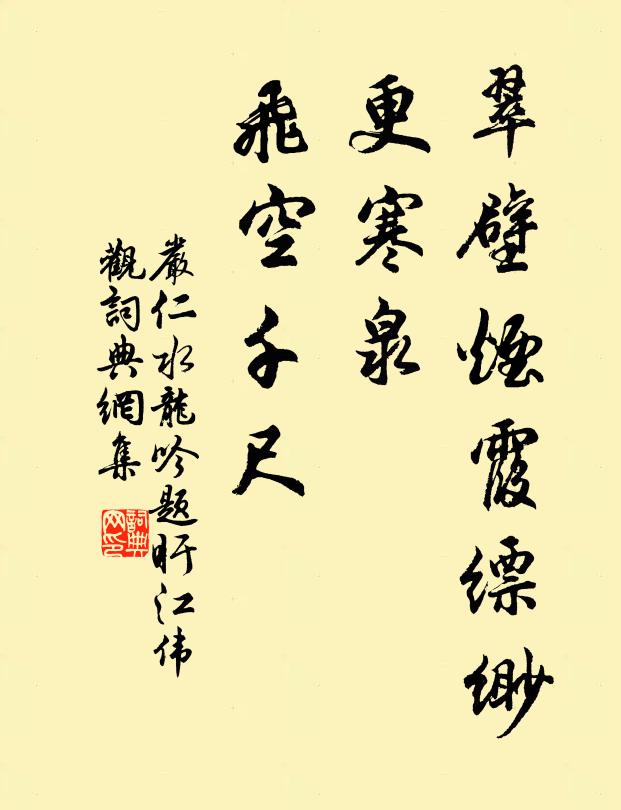 翠壁煙霞縹緲
更寒泉
飛空千尺
嚴仁水龍吟題盱江伟
觀詞典網集
詞典
网印